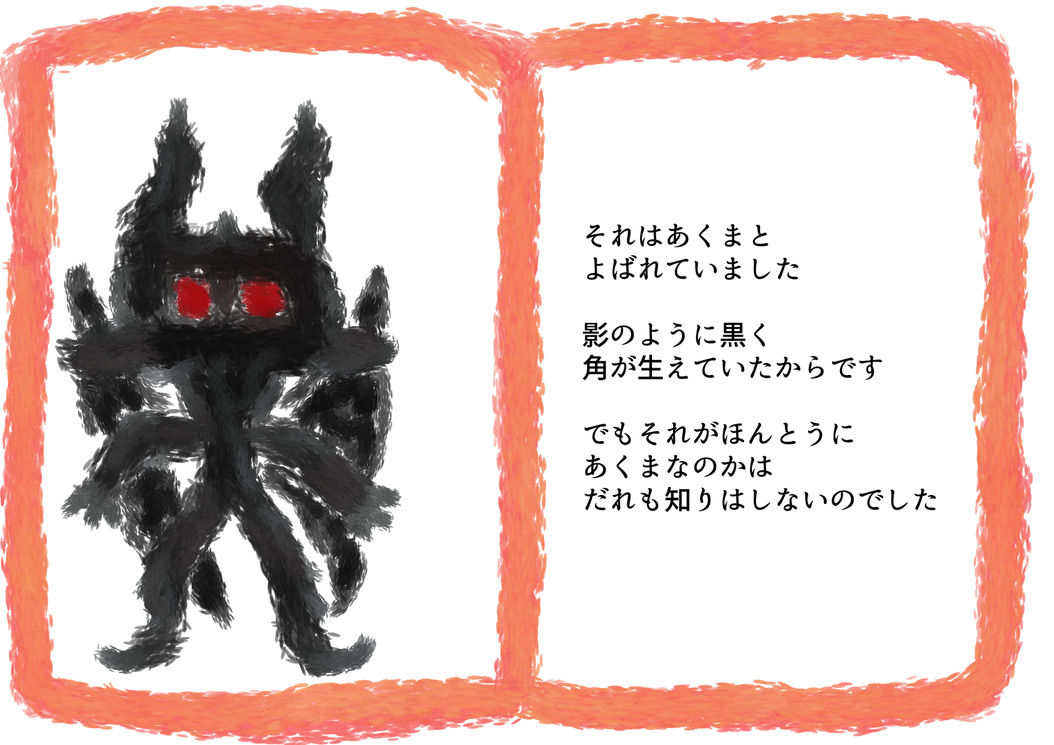 それはあくまと
よばれていました
影のように黒く
角が生えていたからです
でもそれがほんとうに
あくまなのかは
だれも知りはしないのでした